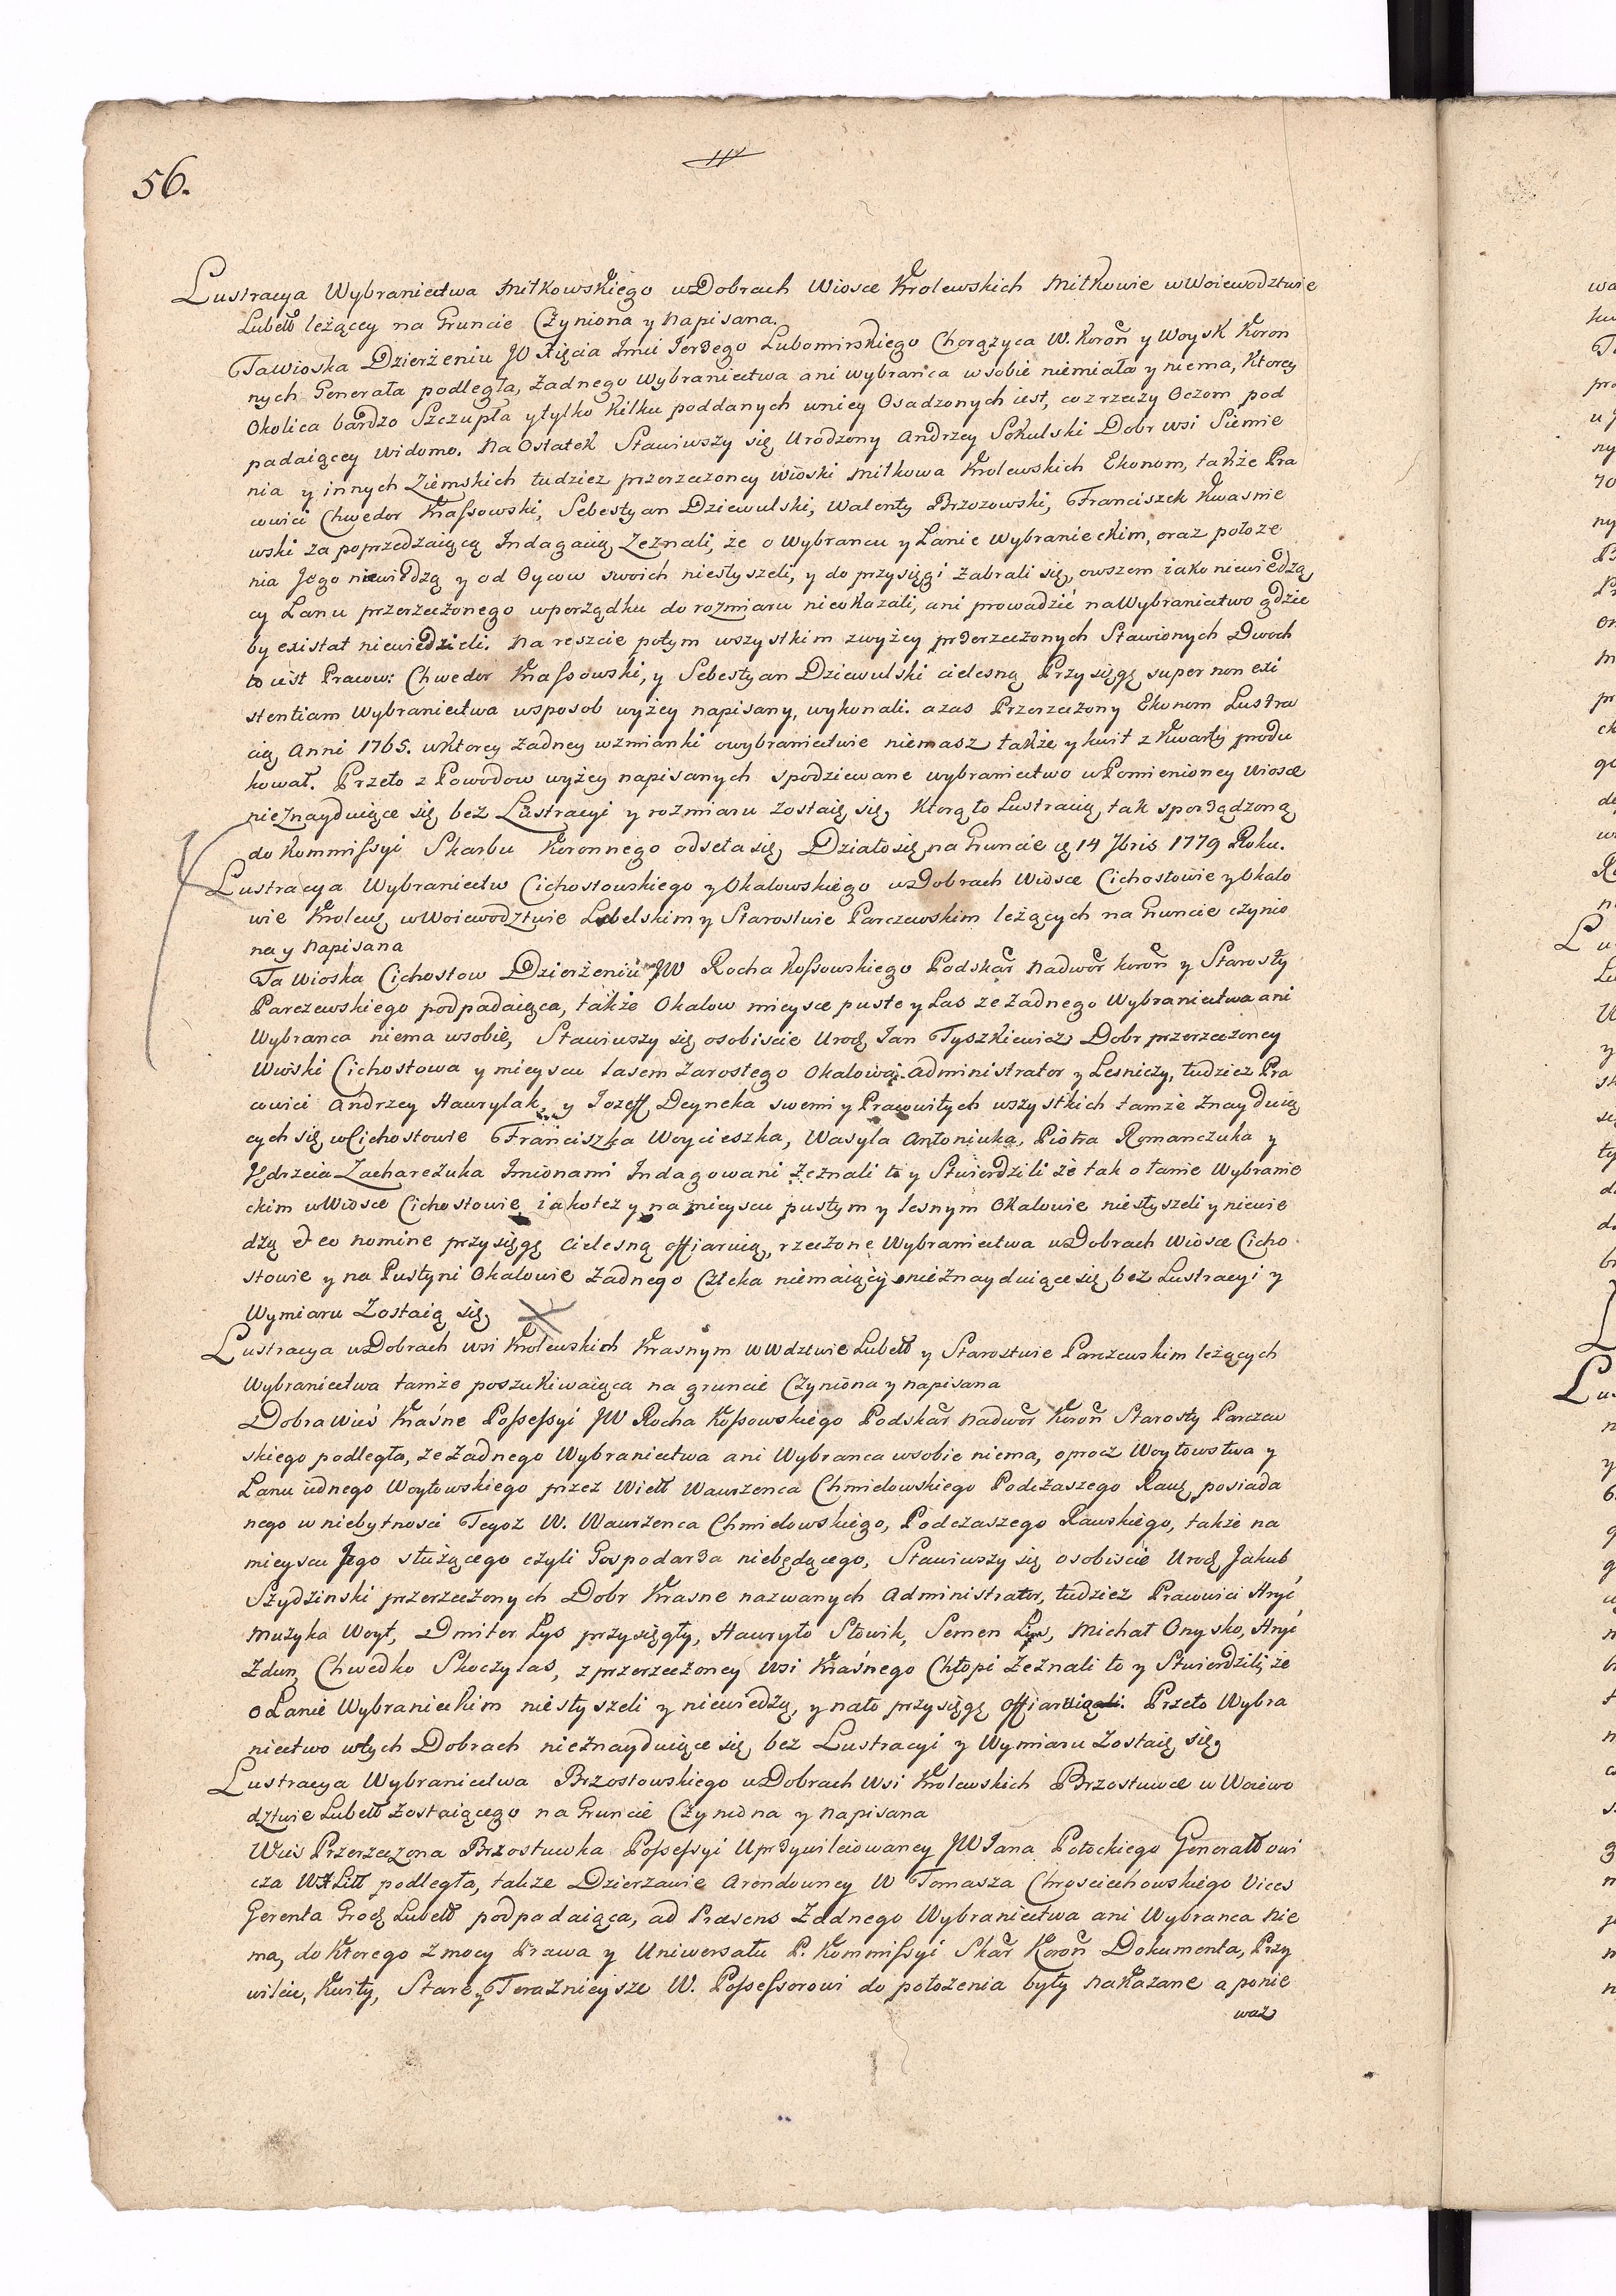 56.
Lustracya Wybraniectwa Mitkowskiego w Dobrach Wiosce Krolewskich Mitkowie w Woiewodztwie
Lubell leżącey na Gruncie Czyniona y Napisana.
Ta Wioska Dzierżeniu JO Xięcia Jmći Jerzego Lubomirskiego Chorążyca W. Koroñ y Woysk Koron
nych Generała podległa, Żadnego Wybraniectwa ani Wybrańca w sobie niemiała y niema, Ktorey
Okolica bardzo Szczupła y tylko Kilku poddanych w niey Osadzonych iest, co z rzeczy Oczom pod
padaiącey Widomo. Na Ostatek Stawiwszy się Urodzony Andrzey Sokulski Dobr wsi Siemie
nia y innych Ziemskich tudzież przerzeczoney Wioski Mitkowa Krolewskich Ekonom, także Pra
cowici Chwedor Knassowski, Sebestyan Dziewulski, Walenty Brzozowski, Franciszek Kwasnie
wski za poprzedzaiącą Indagacią Zeznali, że o Wybrancu y Łanie Wybranieckim, oraz położe
nia Jego niewiedzą y od Oycow swoich niesłyszeli, y do przysięgi zabrali się, owszem iako niewiedzą
cy Łanu przerzeczonego w porządku do rozmiaru nieokazali, ani prowadzić na Wybraniectwo gdzie
by existał niewiedzieli. Na reszcie potym wszystkim zwyżey przerzeczonych Stawionych Dwoch
to iest Pracow: Chwedor Knassowski, y Sebestyan Dziewulski cielesną Przysięgę super non exi
stentiam Wybraniectwa w sposob wyżey napisany, wykonali. a zas Przerzeczony Ekonom Lustra
cię Anni 1765. w ktorey żadney wzmianki o wybraniectwie niemasz także y kwit z Kwarty produ
kował. Przeto z Powodow wyżey napisanych spodziewane wybraniectwo w Pomienioney Wiosce
nieznayduiące się bez Lustracyi y rozmiaru zostaię się, Ktorą to Lustracią tak sporządzoną
do Kommissyi Skarbu Koronnego odseła się, Działo się na Gruncie 14 7bris 1779 Roku.
Lustracya Wybraniectw Cichostowskiego y Okalowskiego w Dobrach Wiosce Cichostowie y Okalo
wie Krolew w Woiewodztwie Lubelskim y Starostwie Parczewskim leżących na Gruncie czynio
na y Napisana
Ta Wioska Cichostow Dzierżeniu JW Rocha Kossowskiego Podskar Nadwor Koroñ y Starosty
Parczewskiego podpadaiąca, także Okalow mieysce puste y Las że żadnego Wybraniectwa ani
Wybranca niema w sobie, Stawiwszy się osobiscie Urod Jan Tyszkiewicz Dobr przerzeczoney
Wioski Cichostowa y mieysca lasem zarostego Okalowa Administrator y Lesniczy, tudzież Pra
cowici Andrzey Hawrylak, y Jozeff Deyneka swemi y Pracowitych wszystkich tamże znayduią
cych się w Cichostowie Franciszka Woycieszka, Wasyla Antoniuka, Piotra Romanczuka y
Jędrzeia Zachareżuka Jmionami Indagowani Zeznali to y Stwierdzili że tak o łanie Wybranie
ckim w Wiosce Cichostowie, iako też y na mieyscu pustym y lesnym Okalowie niesłyszeli y niewie
dzą et eo nomine przysięgę cielesną offiaruią, rzeczone Wybraniectwa w Dobrach Wiosce Cicho
stowie y na Pustyni Okalowie żadnego Człeka niemaiący nieznayduiące się bez Lustracyi y
Wymiaru zostaią się
Lustracya w Dobrach wsi Krolewskich Krasnym w Wdztwie Lubell y Starostwie Parczewskim leżących
Wybraniectwa tamże poszukiwaiąca na gruncie Czyniona y napisana
Dobra Wieś Kraśne Possessyi JW Rocha Kossowskiego Podskar Nadwor Koroñ Starosty Parczew
skiego podległa, że żadnego Wybraniectwa ani Wybranca w sobie niema, oprocz Woytowstwa y
Łanu iednego Woytowskiego przez Wiell Wawrzenca Chmielowskiego Podczaszego Raw posiada
nego w niebytnosci Tegoż W. Wawrzenca Chmielowskiego, Podczaszego Rawskiego, także na
mieyscu Jego służącego czyli Gospodarza niebędącego, Stawiwszy się osobiscie Urod Jakub
Szydzinski przerzeczonych Dobr Krasne nazwanych Administrator, tudzież Pracowici Hryć
Muzyka Woyt, Dmiter Lys przysięgły, Hawryło Słowik, Semen Lys, Michał Onysko, Hryć
Zdun, Chwedko Skoczylas, z przerzeczoney Wsi Kraśnego Chłopi Zeznali to y Stwierdzili, że
o Łanie Wybranieckim niesłyszeli y niewiedzą, y na to przysięgę offiaruią. Przeto Wybra
niectwo w tych Dobrach nieznayduiące się bez Lustracyi y Wymiaru zostaię się,
Lustracya Wybraniectwa Brzostowskiego w Dobrach Wsi Krolewskich Brzostuwce w Woiewo
dztwie Lubell zostaiącego na Gruncie Czyniona y Napisana
Wieś Przerzeczona Brzostuwka Possessyi Uprzywileiowaney JW Jana Potockiego Generałłowi
cza WXLitt podległa, także Dzierżawie Arendowney W Tomasza Chrosciechowskiego Vices
Gerenta Grod Lubell podpadaiąca, ad Præsens Żadnego Wybraniectwa ani Wybranca nie
ma, do Ktorego z mocy Prawa y Uniwersału P. Kommissyi Skar Koroñ Dokumenta, Przy
wileie, Kwity, Stare y Teraznieysze W. Possessorowi do położenia były Nakazane a ponie
waż